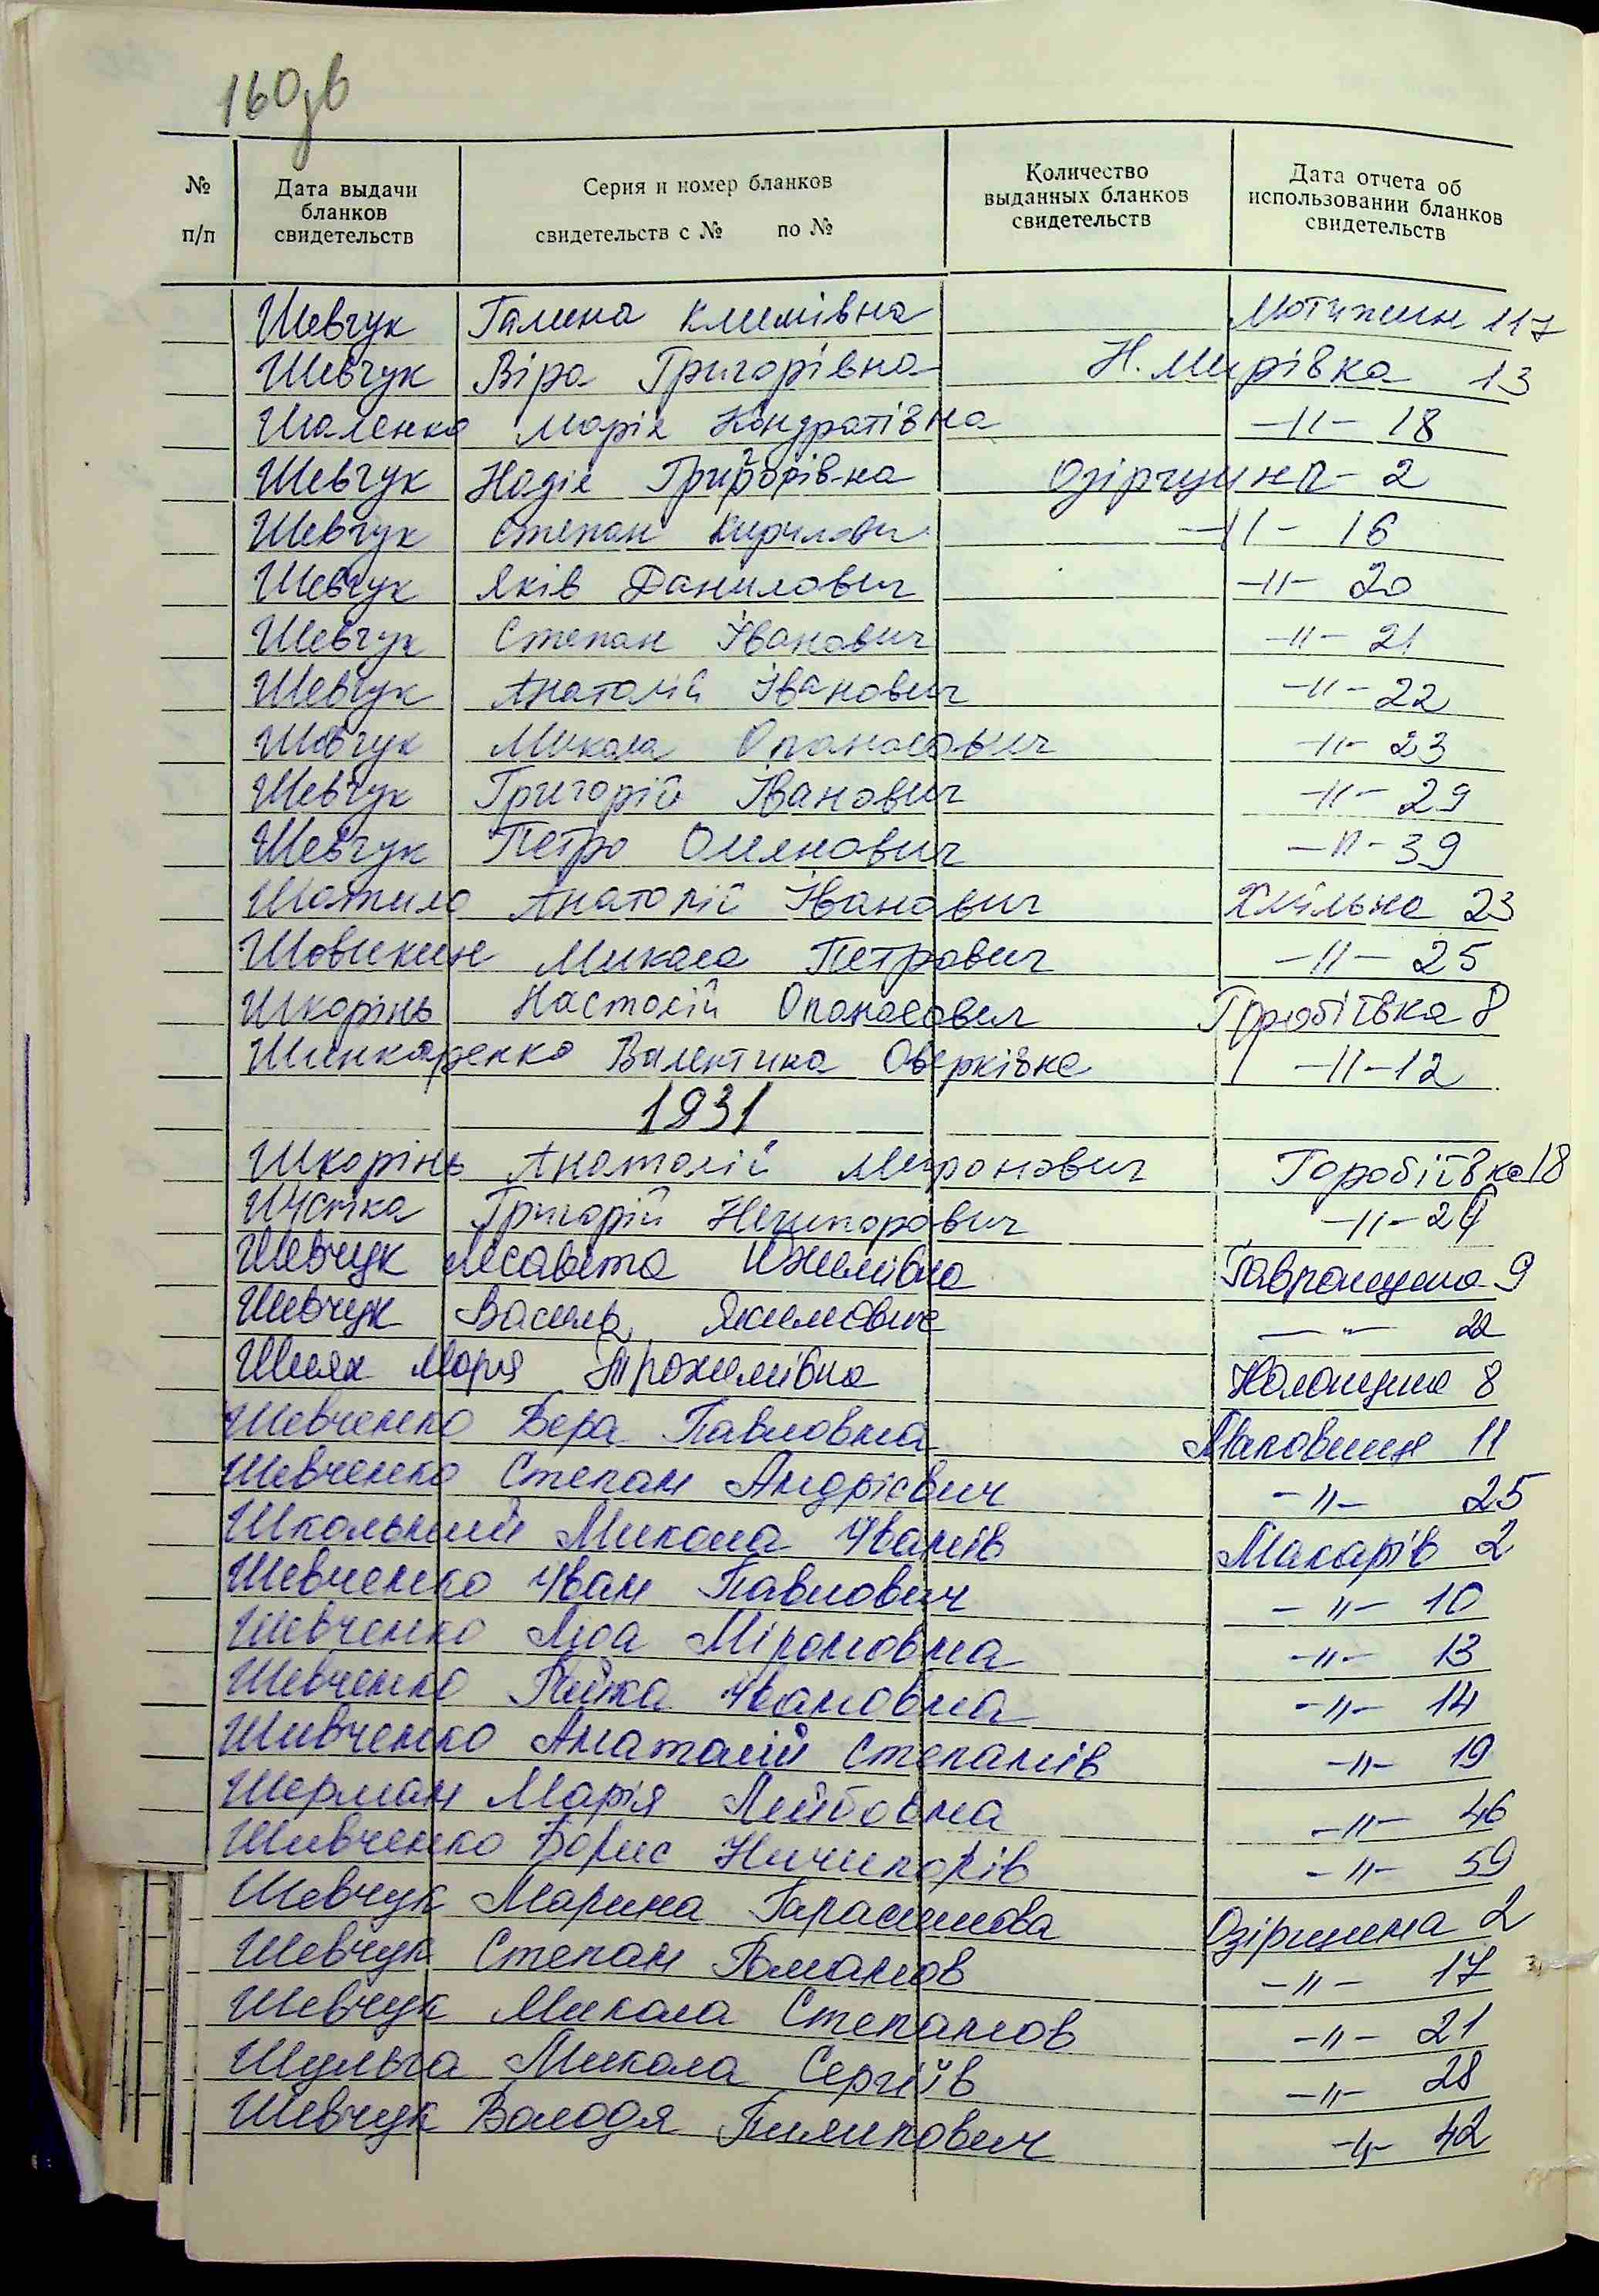 160зв
№ п/п
Дата выдачи бланков свидетельств
Серия и номер бланков свидетельств с № по №
Количество выданных бланков свидетельств
Дата отчета об использовании бланков свидетельств
Шевчук Галина Климівна Мотижин 117
Шевчук Віра Григорівна Н.Мирівка 13
Шаленко Марія Кондратівна -"- 18
Шевчук Надія Григорівна Озірщина - 2
Шевчук Степан Кирилови -"- 16
Шевчук Яків Данилович -"- 20
Шевчук Степан Іванович -"- 21
Шевчук Анатолій Іванович -"- 22
Шевчук Микола Опанасович -"- 23
Шевчук Григорій Іванович -"- 29
Шевчук Петро Омянович -"- 39
Анатолій Іванович 23
Микола Петрович -"- 25
Шкорінь Опанасович 8
Шинкаренко Валентина Оверківна -"- 12
1931
Шкорінь Анатолій Миронович Горобіївка 18
Григорій Нечипорович -"- 29
Шевчук Лісавета Юхимівна Гавронщина 9
Шевчук Василь Якимович -"- 22
Шмян Марія Трохимівна Колонщина 8
Шевченко Вера Павловна Маковище 11
Шевченко Степан Андрієвич -"- 25
Школьний Микола Іванів Макарів 2
Шевченко Іван Павлович -"- 10
Шевченко Люа Міроновна -"- 13
Шевченко Івановна -"- 14
Шивченко Анаталій Степанів -"- 19
Шерман Марія Лейбовна -"- 46
Шивченко Борис Ничипорів -"- 59
Шевчук Марина Гарасимова Озірщина 2
Шевчук Степан Романов -"- 17
Шевчук Микола Степанов -"- 21
Шульга Микола Сергіїв -"- 28
Шевчук Володя Пилипович -"- 42